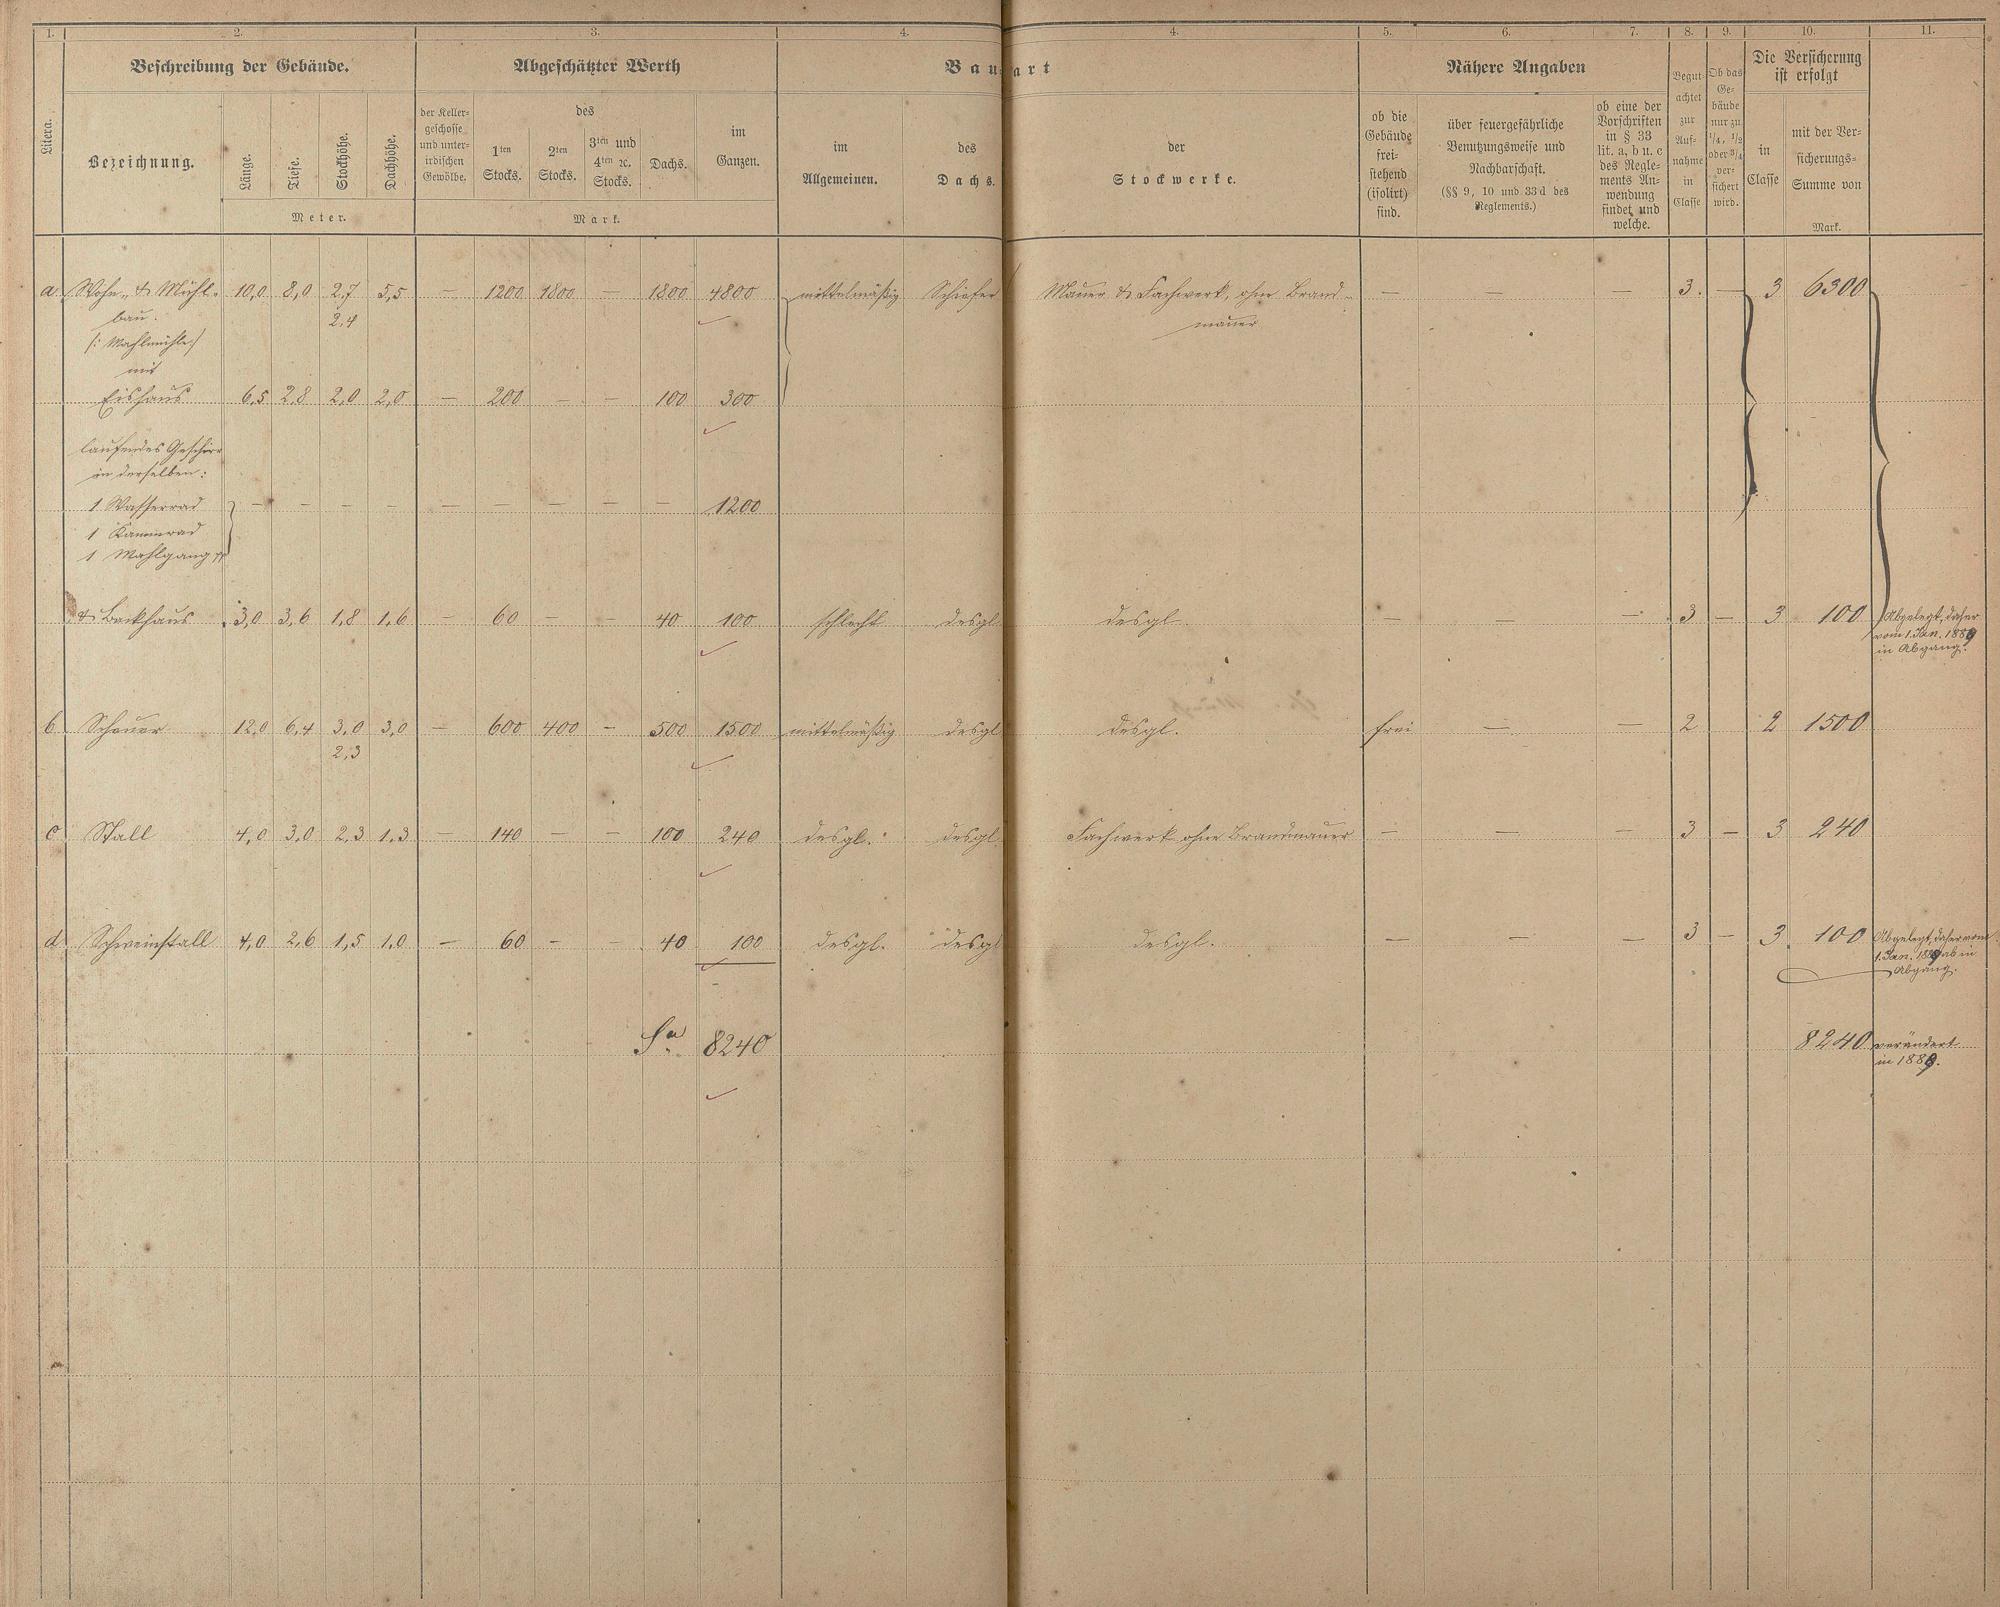 1. 2. 3. 4. 4. 5. 6. 7. 8. 9. 10. 11.
Beschreibung der Gebäude. Abgeschätzter Werth Bau-art Nähere Angaben
Die Versicherung
ist erfolgt
Litera.
Bezeichnung.
Länge. Tiefe. Stockhöhe. Dachhöhe.
Meter.
der Keller-
geschosse
und unter-
irdischen
Gewölbe.
des
1ten
Stocks.
2ten
Stocks.
3ten und
4ten ꝛc.
Stocks.
Dachs.
im
Ganzen.
Mark.
im
Allgemeinen.
des
Dachs.
der
Stockwerke.
ob die
Gebäude
frei-
stehend
(isolirt)
sind.
über feuergefährliche
Benutzungsweise und
Nachbarschaft.
(§§ 9, 10 und 33 d des
Reglements.)
ob eine der
Vorschriften
in § 33
lit. a, b u. c
des Regle-
ments An-
wendung
findet und
welche.
Begut-
achtet
zur
Auf-
nahme
in
Classe
Ob das
Ge-
bäude
nur zu
1/4, 1/2
oder 3/4
ver-
sichert
wird.
in
Classe
mit der Ver-
sicherungs-
Summe von
Mark.
a. Wohn- & Mühl- 10,0 8,0 2,7 5,5 — 1200 1800 — 1800 4800 mittelmäßig Schiefer Mauer & Fachwerk, ohne Brand- — — — 3. — 3 6300
bau. 2,4 mauer
(: Mahlmühle :)
mit
Eishaus 6,5 2,8 2,0 2,0 — 200 — — 100 300
laufendes Geschirr
in derselben:
1 Wasserrad — — — — — — — — — 1200
1 Kammrad
1 Mahlgang
& Backhaus 3,0 3,6 1,8 1,6 — 60 — — 40 100 schlecht desgl. desgl. — — — 3 — 3 100 Abgelegt, daher
vom 1. Jan. 1889
in Abgang.
b. Scheuer 12,0 6,4 3,0 3,0 — 600 400 — 500 1500 mittelmäßig desgl desgl. frei — — 2 2 1500
2,3
c. Stall 4,0 3,0 2,3 1,3 — 140 — — 100 240 desgl. desgl. Fachwerk ohne Brandmauer — — — 3 — 3 240
d. Schweinstall 4,0 2,6 1,5 1,0 — 60 — — 40 100 desgl. desgl desgl. — — — 3 — 3. 100 Abgelegt, daher vom
1. Jan. 1889 ab in
Abgang.
Sa. 8240 8240 verändert
in 1889.